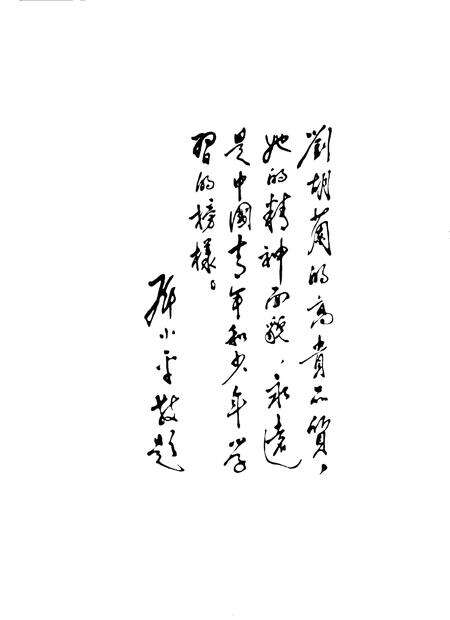 劉胡蘭的高貴品質，
她的精神面貌，永遠
是中國青年和少年學
習的榜樣。
鄧小平敬題